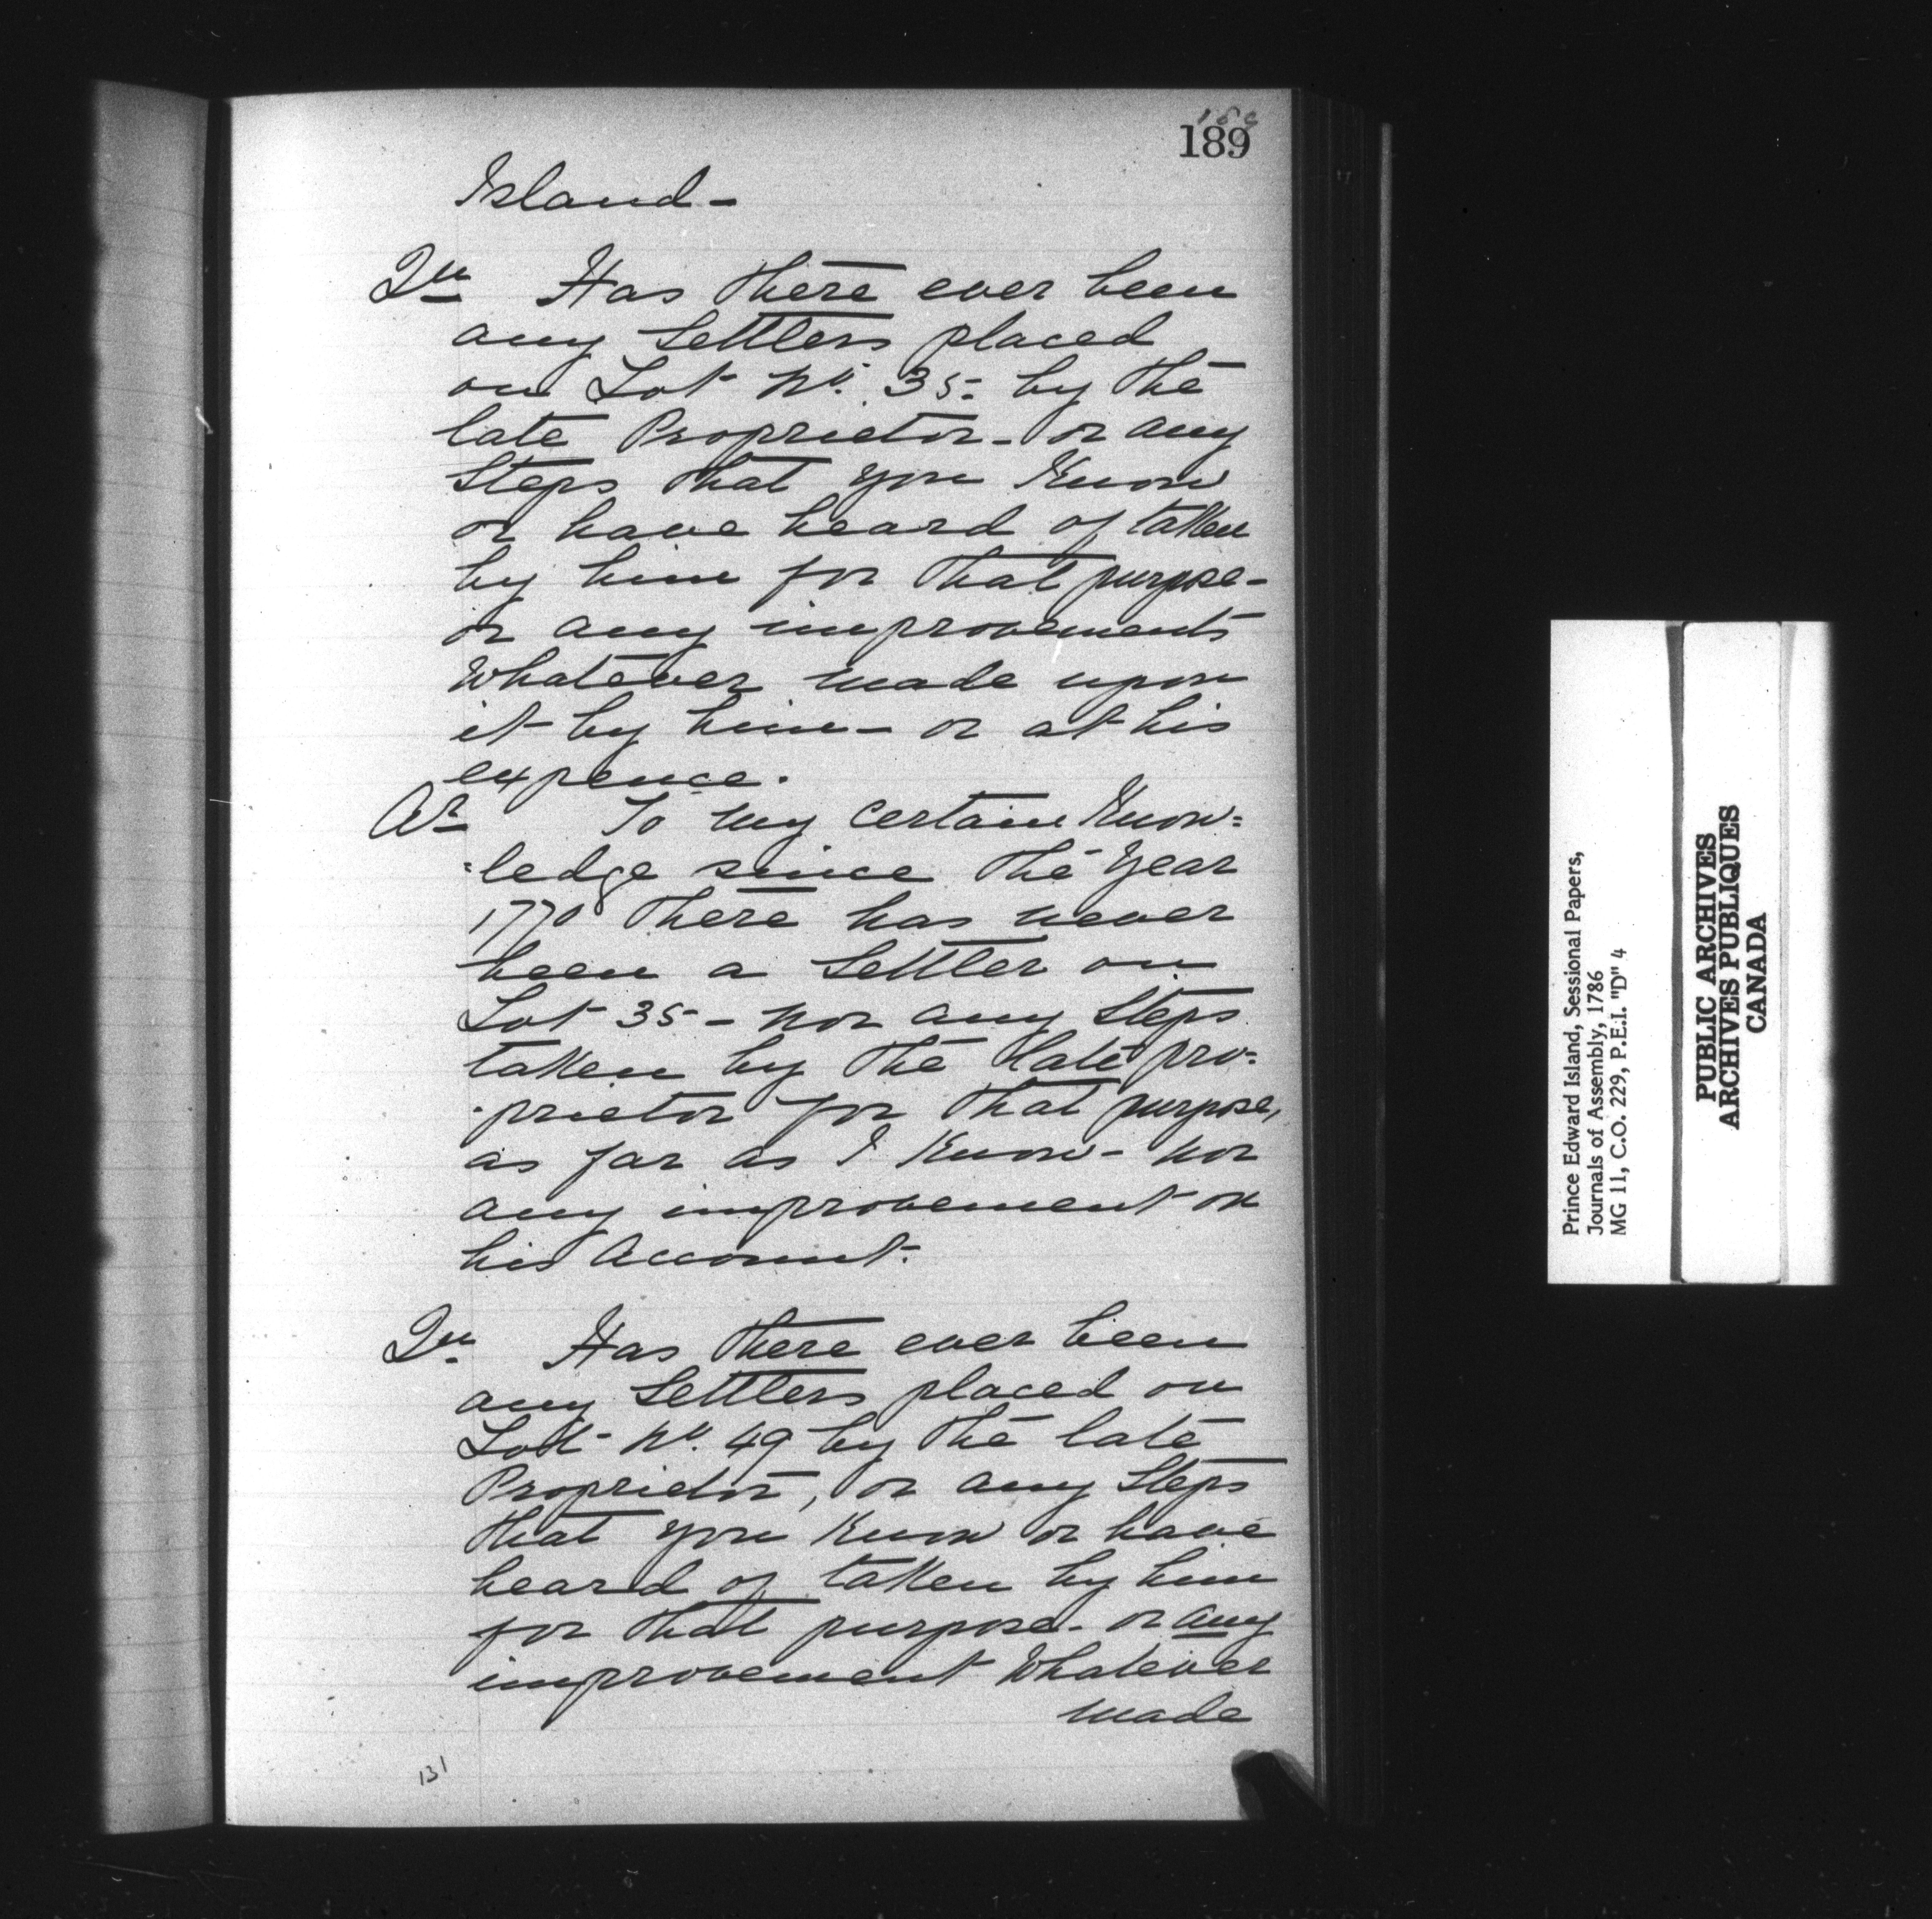 189
189
Island-
Qu Has there ever been
any Settlers placed
on Lot No. 35- by the
late Proprietor- or any
Steps that you Know
or have heard of taken
by him for that purpose-
or any improvements
Whatever made upon
it by him- or at his
expence.
Ar To my certain Know=
=ledge since the Year
1770 there has never
been a Settler on
Lot 35- nor any Steps
taken by the late pro-
-prietor for that purpose,
as far as I Know- nor
any improvement on
his Account.
Qu. Has there ever been
any Settlers placed on
Lott No. 49 by the late
Proprietor, or any Steps
that you Know or have
heard of taken by him
for that purpose- or any
improvement Whatever
made
131
Prince Edward Island, Sessional Papers,
Journals of Assembly, 1786
MG 11, C.O. 229, P.E.I. "D" 4
PUBLIC ARCHIVES
ARCHIVES PUBLIQUES
CANADA